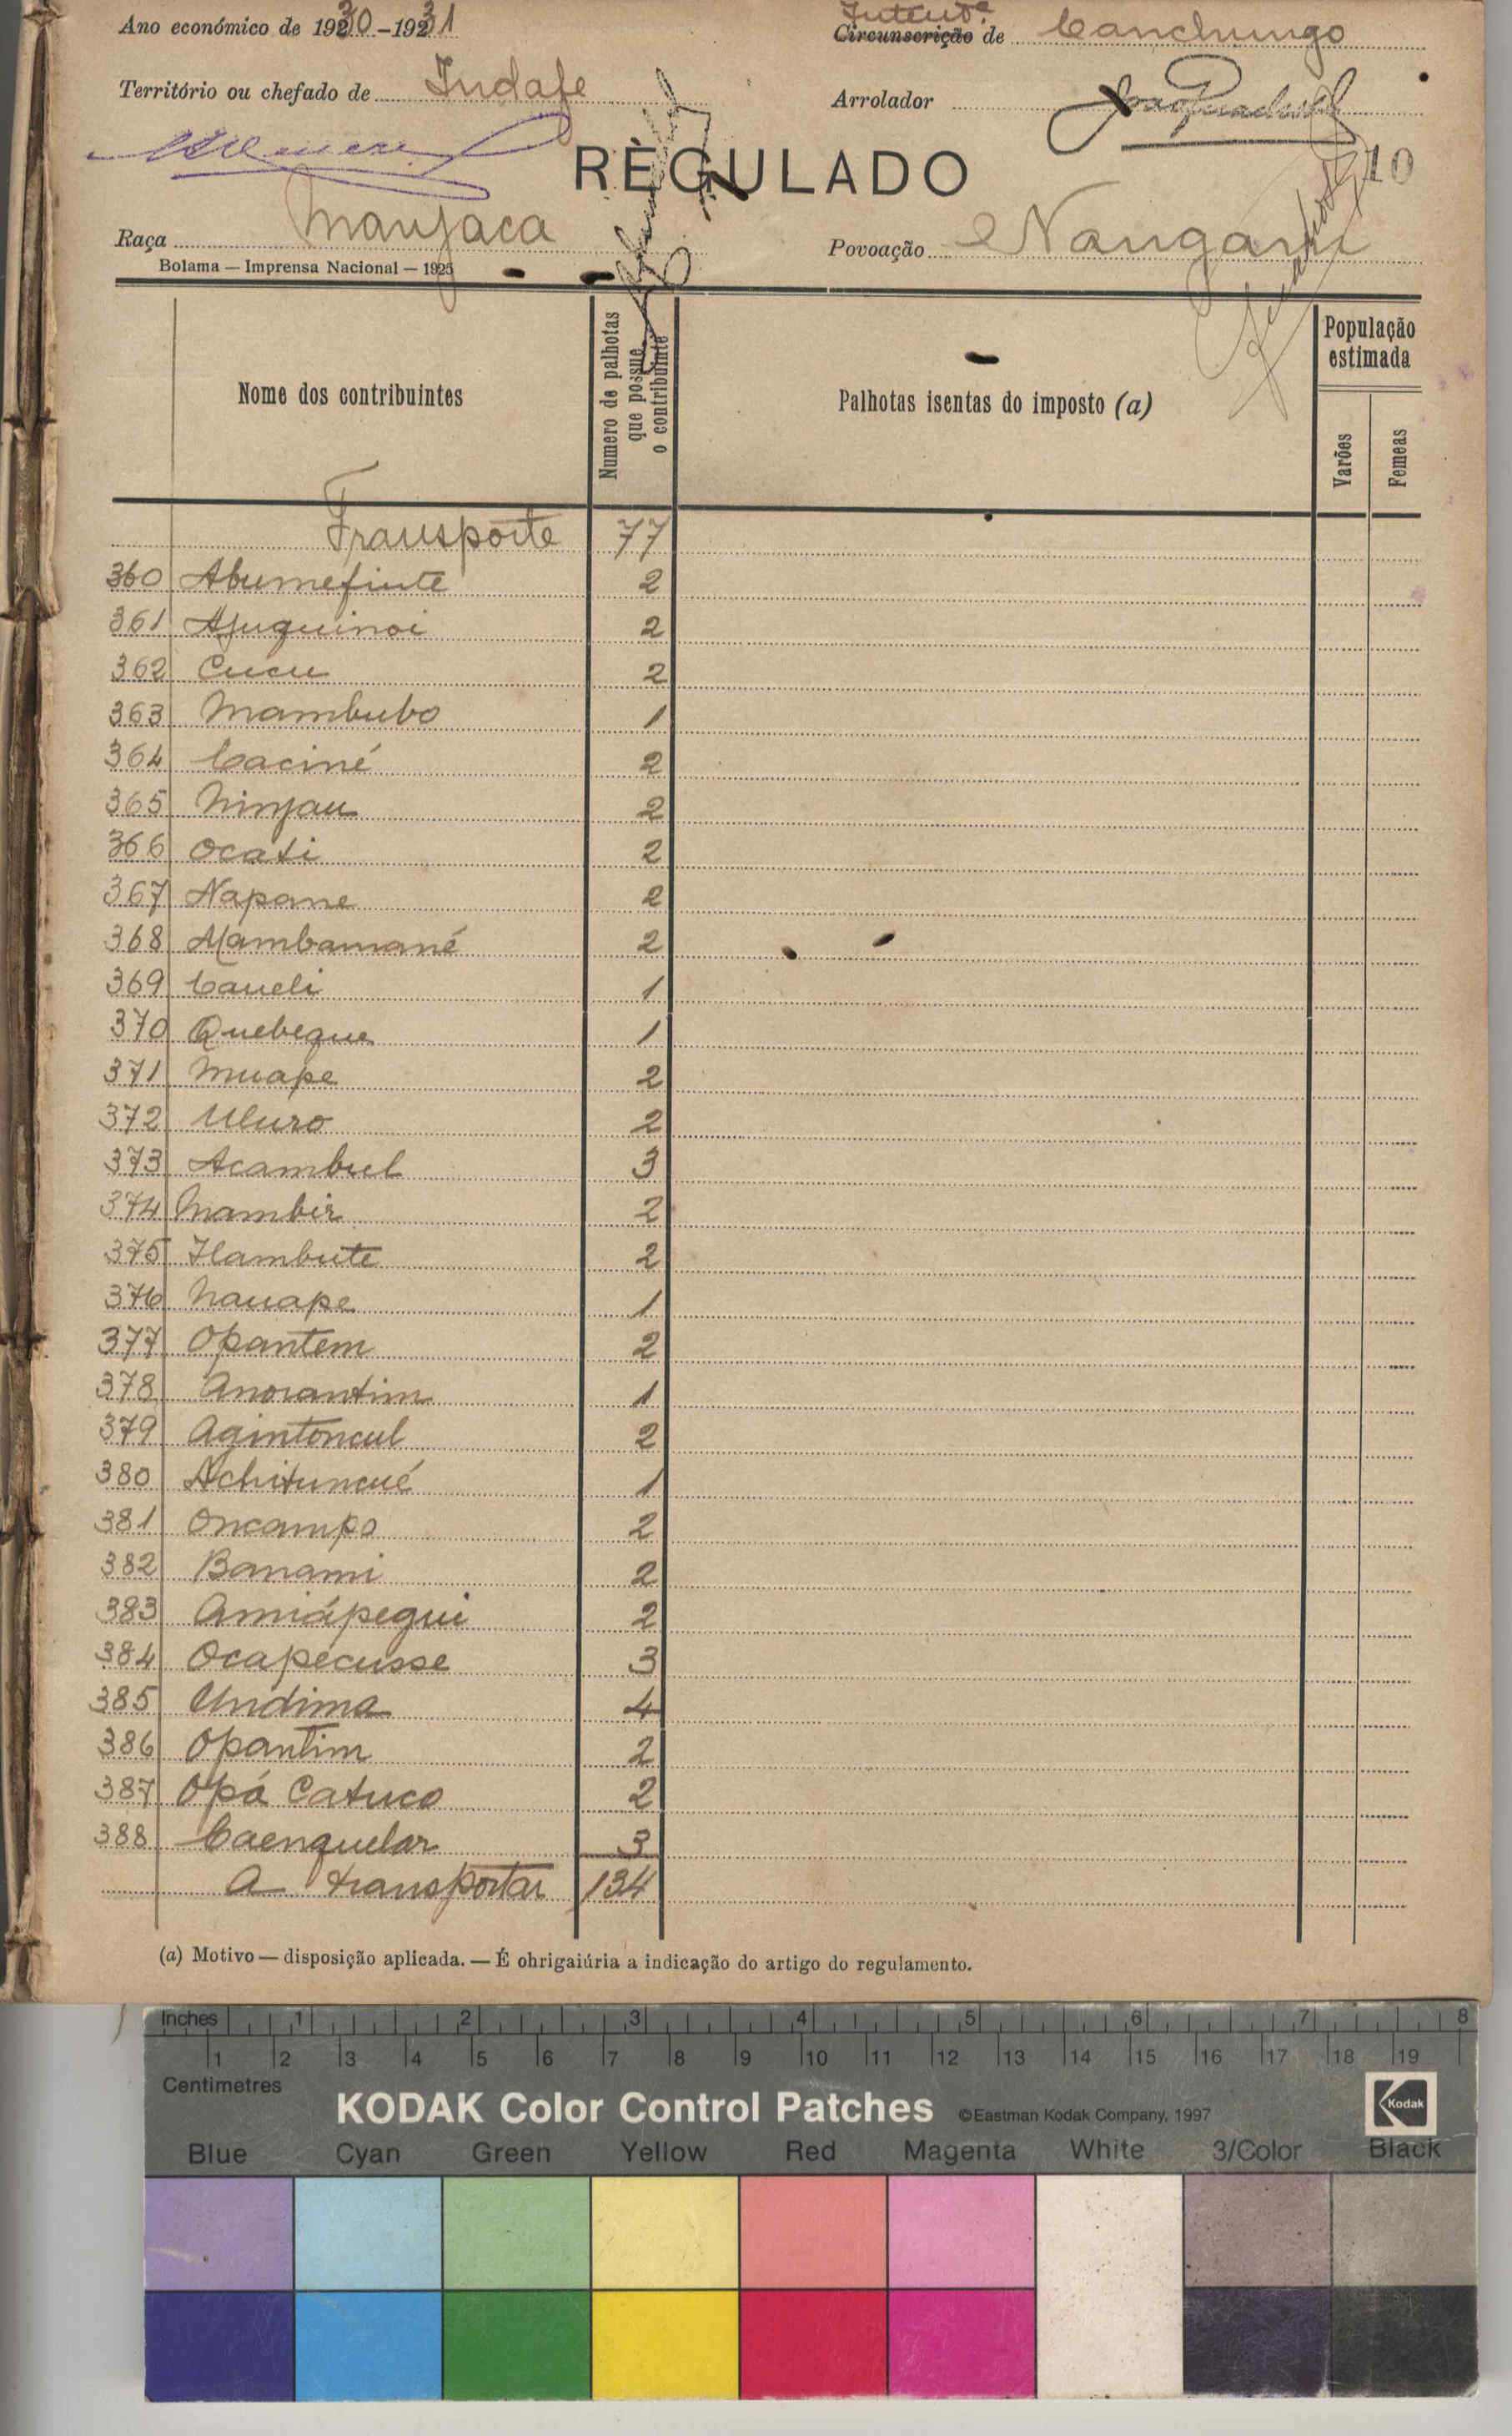 Ano económico de 1930-1931
Intend.ª
Circunscrição de Canchungo
Território ou chefado de Indafe
Arrolador
RÈGULADO
10
Raça Manjaca
Povoação Nangani
Bolama — Imprensa Nacional — 1925
Nome dos contribuintes
Numero de palhotas que possue o contribuinte
Palhotas isentas do imposto (a)
População estimada
Varões
Femeas
Transporte 77
360 Abumefinte 2
361 Ajuquinoi 2
362 Cucu 2
363 Mambubo 1
364 Caciné 2
365 Ninjau 2
366 Ocati 2
367 Napane 2
368 Mambamané 2
369 Caueli 1
370 Quebeque 1
371 Muape 2
372 Uluro 2
373 Acambul 3
374 Mambir 2
375 Ilambute 2
376 Nauape 1
377 Opantem 2
378 Anorantim 1
379 Agintoncul 2
380 Achituncué 1
381 Oncampo 2
382 Banami 2
383 Amiápegui 2
384 Ocapecusse 3
385 Undima 4
386 Opantim 2
387 Opá Catuco 2
388 Caenquelar 3
A transportar 134
(a) Motivo — disposição aplicada. — É ohrigaiúria a indicação do artigo do regulamento.
Inches 1 2 3 4 5 6 7 8
1 2 3 4 5 6 7 8 9 10 11 12 13 14 15 16 17 18 19
Centimetres
KODAK Color Control Patches ©Eastman Kodak Company, 1997 Kodak
Blue Cyan Green Yellow Red Magenta White 3/Color Black